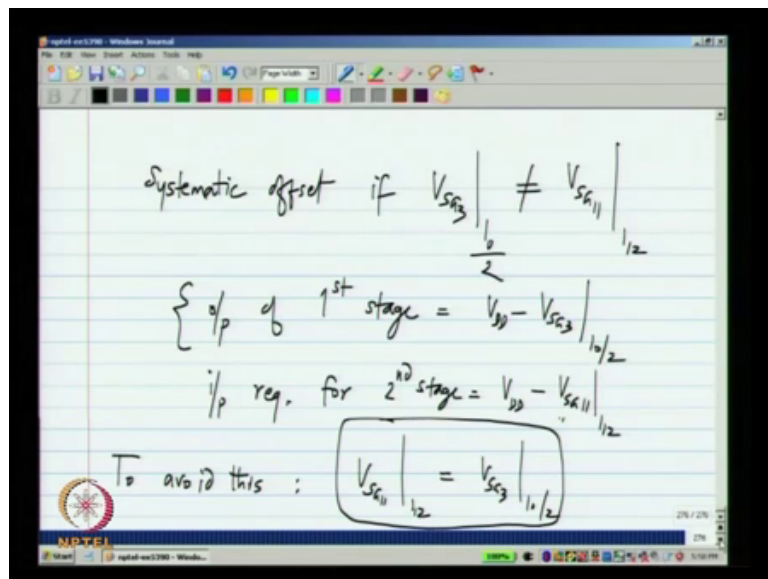 nptel-ee5390 - Windows Journal
File Edit View Insert Actions Tools Help
Page Width
B I
Systematic offset if V_SG3 |_(I0/2) ≠ V_SG11 |_I2
{ o/p of 1st stage = V_DD - V_SG3 |_I0/2
i/p req. for 2nd stage = V_DD - V_SG11 |_I2
To avoid this : V_SG11 |_I2 = V_SG3 |_I0/2
276 / 276
276
NPTEL
Start nptel-ee5390 - Windo... 100% 5:50 PM